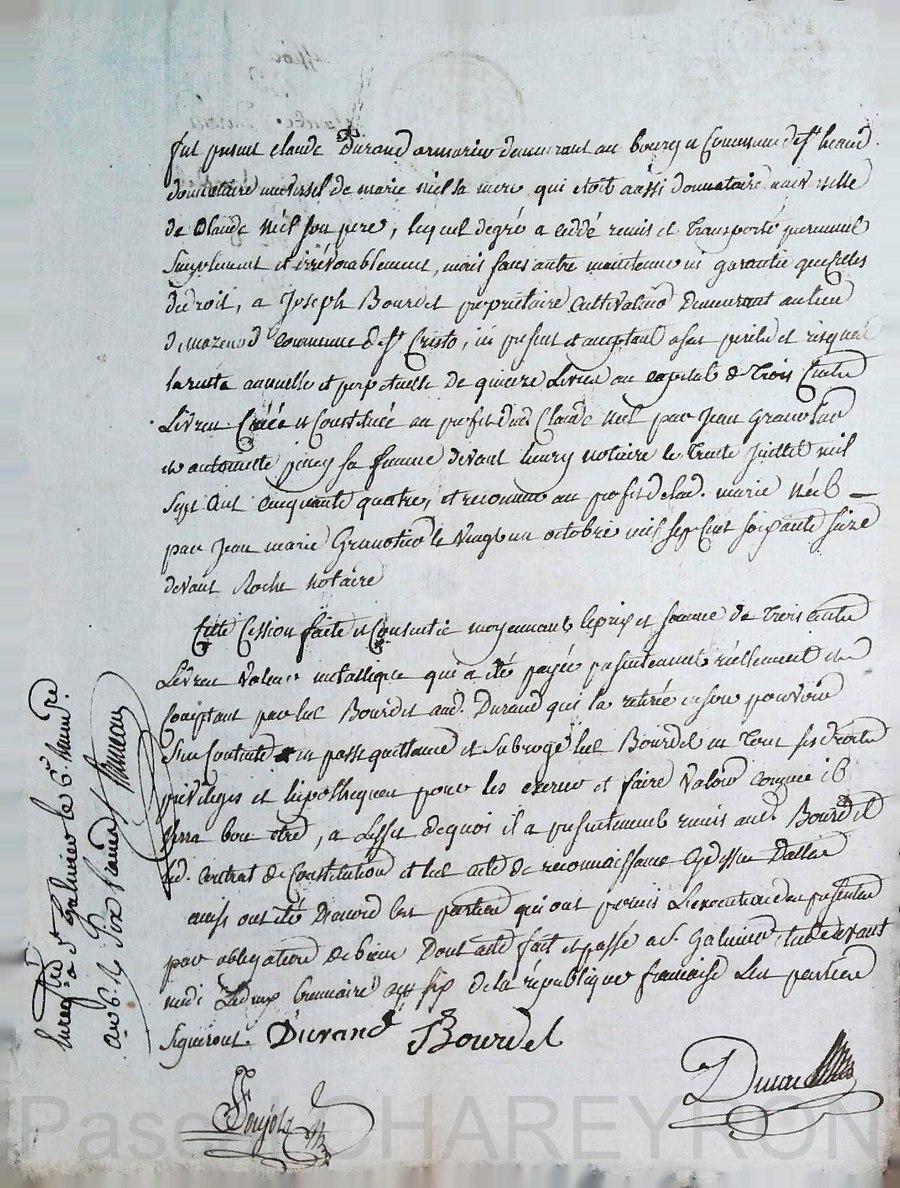 fut présent claude Durand armurier demeurant au bourg et Commune de St heand
donnataire universel de marie niel sa mere, qui etoit aussi donnataire universelle
de Claude Niel son pere, lequel degré a ceddé remis et Transporté purement
Simplement et irrévocablement, mais sans autre maintenue ni garantie que celles
du droit, a Joseph Bourdel propriétaire Cultivateur Demeurant au lieu
Commune de St Cristo, ici présent et acceptant a ses perils et risques
la rente annuelle et perpetuelle de quinze Livres au capital de Trois Cents
Livres Créée et Constituée au profit dud Claude niel par Jean
et antoinette sa femme devant notaire le Trente Juillet mil
Sept Cent Cinquante quatre, et reconnue au profit de lad. marie niel
par Jean marie le Vingt un octobre mil sept Cent soixante Seize
devant Roche notaire
Cette Cession faite et Consentie moyennant le prix et somme de Trois Cents
Livres Valeur metallique qui a été payée présentement réellement et
Comptant par led Bourdel aud. Durand qui la retirée en son pouvoir
S'en Contente en passe quittance et Subrogé led Bourdel en Tous ses droits
privileges et hipotheques pour les exercer et faire Valoir Comme il
Verra bon etre, a L'effet de quoi il a présentement remis aud. Bourdel
led. Contrat de Constitution et led acte de reconnaissance
ainsi ont été D'accord les parties qui ont promis L'execution des présentes
par obligation de biens Dont acte fait et passé a St Galmier, Etude avant
midi brumaire an six de la république francaise Les parties
Signeront. Durand Bourdel
Enregistré a St Galmier le 6 brumre
an 6